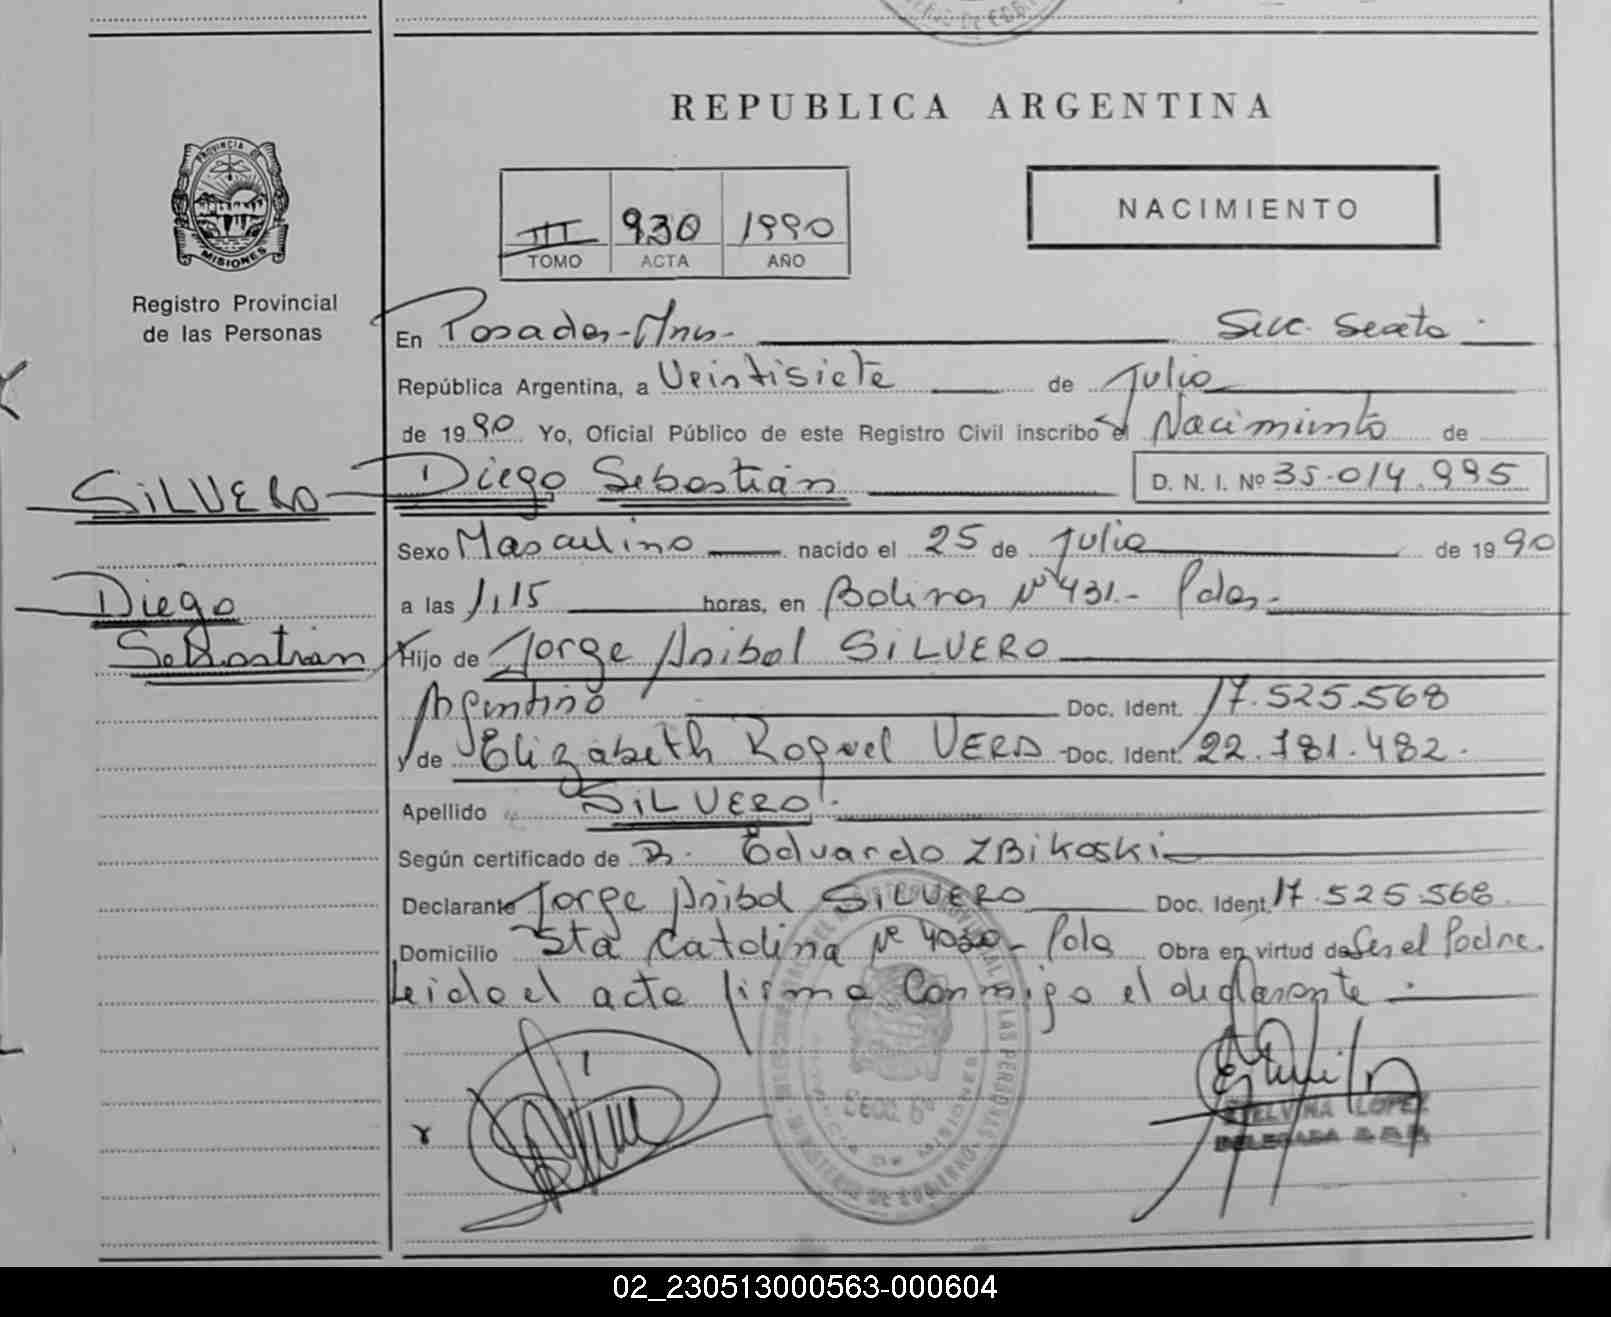 REPUBLICA ARGENTINA
PROVINCIA DE
MISIONES
Registro Provincial
de las Personas
III 930 1990
TOMO ACTA AÑO
NACIMIENTO
En Posadas-Mns- Secc. Sexta.
República Argentina, a Veintisiete de Julio
de 1990 Yo, Oficial Público de este Registro Civil inscribo el Nacimiento de
SILVERO Diego Sebastián D. N. I. Nº 35.014.995
Sexo Masculino nacido el 25 de Julio de 1990
Diego
a las 1,15 horas, en Bolivar Nº 431.- Pdas.-
Sebastián
Hijo de Jorge Anibal SILVERO
Argentino Doc. Ident. 17.525.568
y de Elizabeth Raquel VERA Doc. Ident. 22.781.482.
Apellido SILVERO.
Según certificado de Dr. Eduardo ZBikoski
Declarante Jorge Anibal SILVERO Doc. Ident. 17.525.568
Domicilio Sta Catalina Nº Pdas Obra en virtud de Ser el Padre.
Leido el acta firma Conmigo el declarante.
SECC. 6ª
MINISTERIO DE GOBIERNO
PROVINCIA DE MISIONES
ETELVINA LOPEZ
DELEGADA
02_230513000563-000604